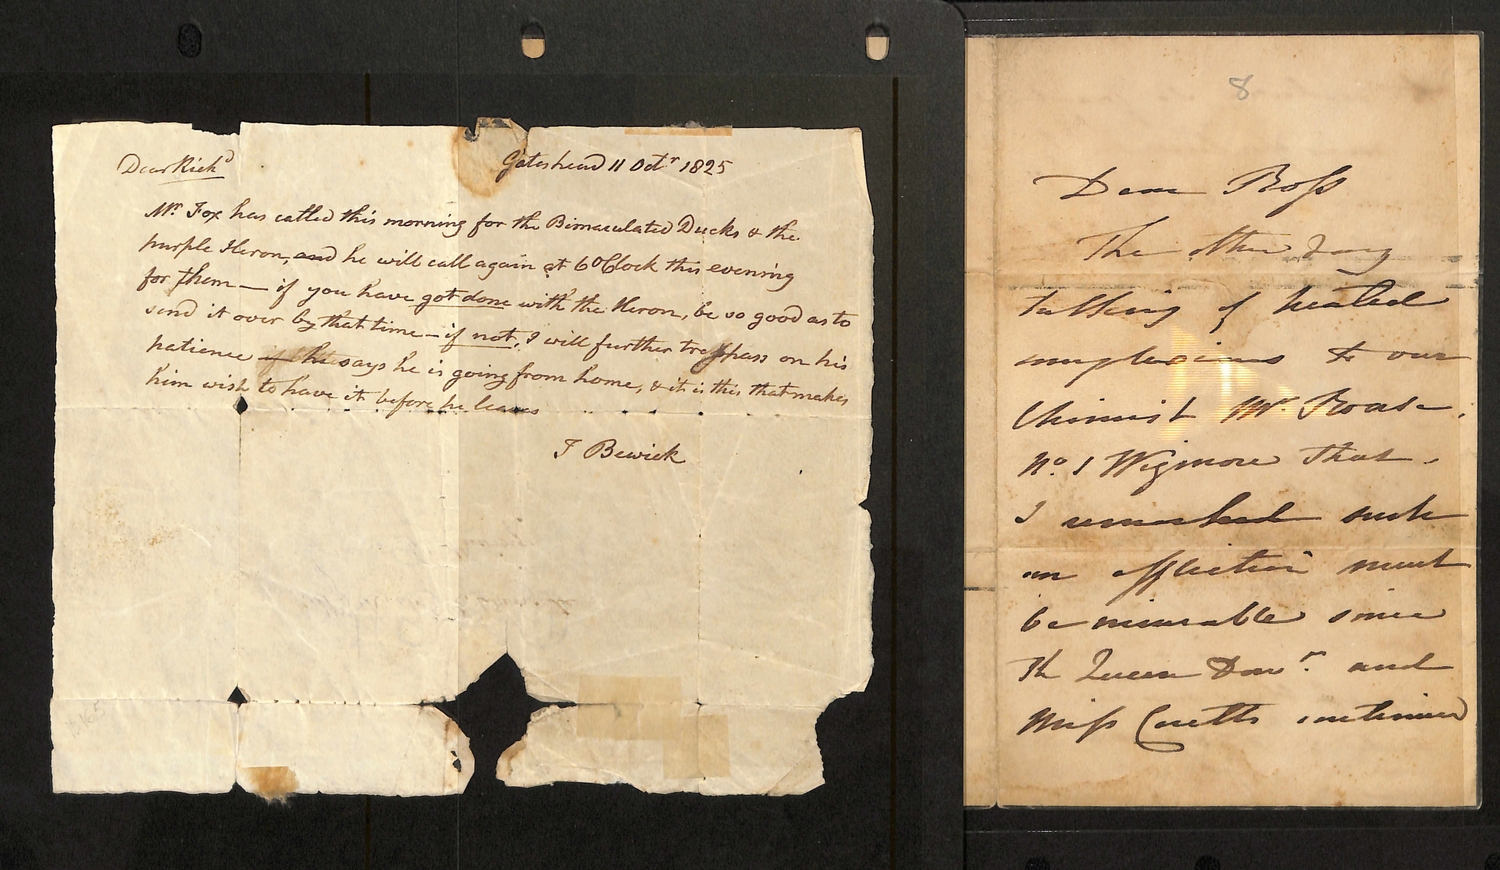 Dear Richd
Gateshead 11 Octr 1825
Mr. Fox has called this morning for the Bimaculated Ducks & the
purple Heron, and he will call again at 6 OClock this evening
for them — if you have got done with the Heron, be so good as to
send it over by that time — if not, I will further tresspass on his
patience — he says he is going from home, & it is this that makes
him wish to have it before he leaves
T Bewick
8
Dear Ross
The other day
talking of heated
complexions & our
Chimist Mr. Rouse
No. 1 Wigmore that
I remarked such
an affliction must
be incurable since
Th Queen Dowr. and
Miss Coutts continued